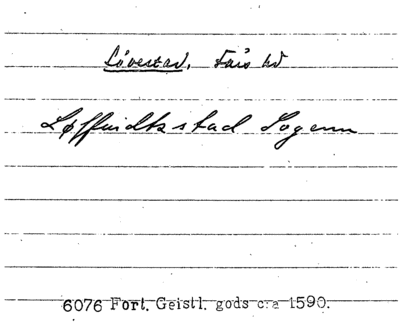 Lövestad, Färs hd
Løffuidtzstad Sogenn
6076 Fort. Geistl. gods c:a 1590.